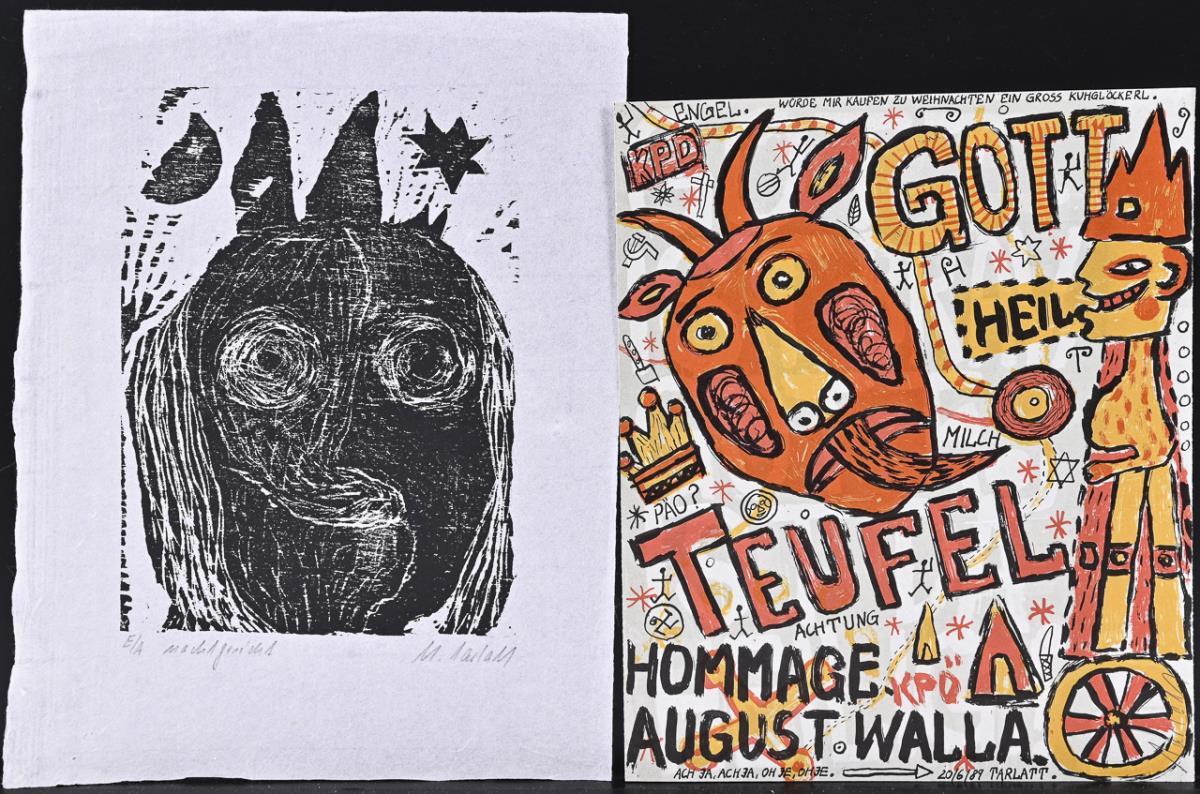 E/A nachtgesicht
WÜRDE MIR KAUFEN ZU WEIHNACHTEN EIN GROSS KUHGLÖCKERL.
ENGEL.
KPD
GOTT.
HEIL
MILCH
PAO?
TEUFEL
ACHTUNG
HOMMAGE.
KPÖ
AUGUST. WALLA.
ACH JA, ACH JA, OH JE, OH JE.
20/6/89 TARLATT.